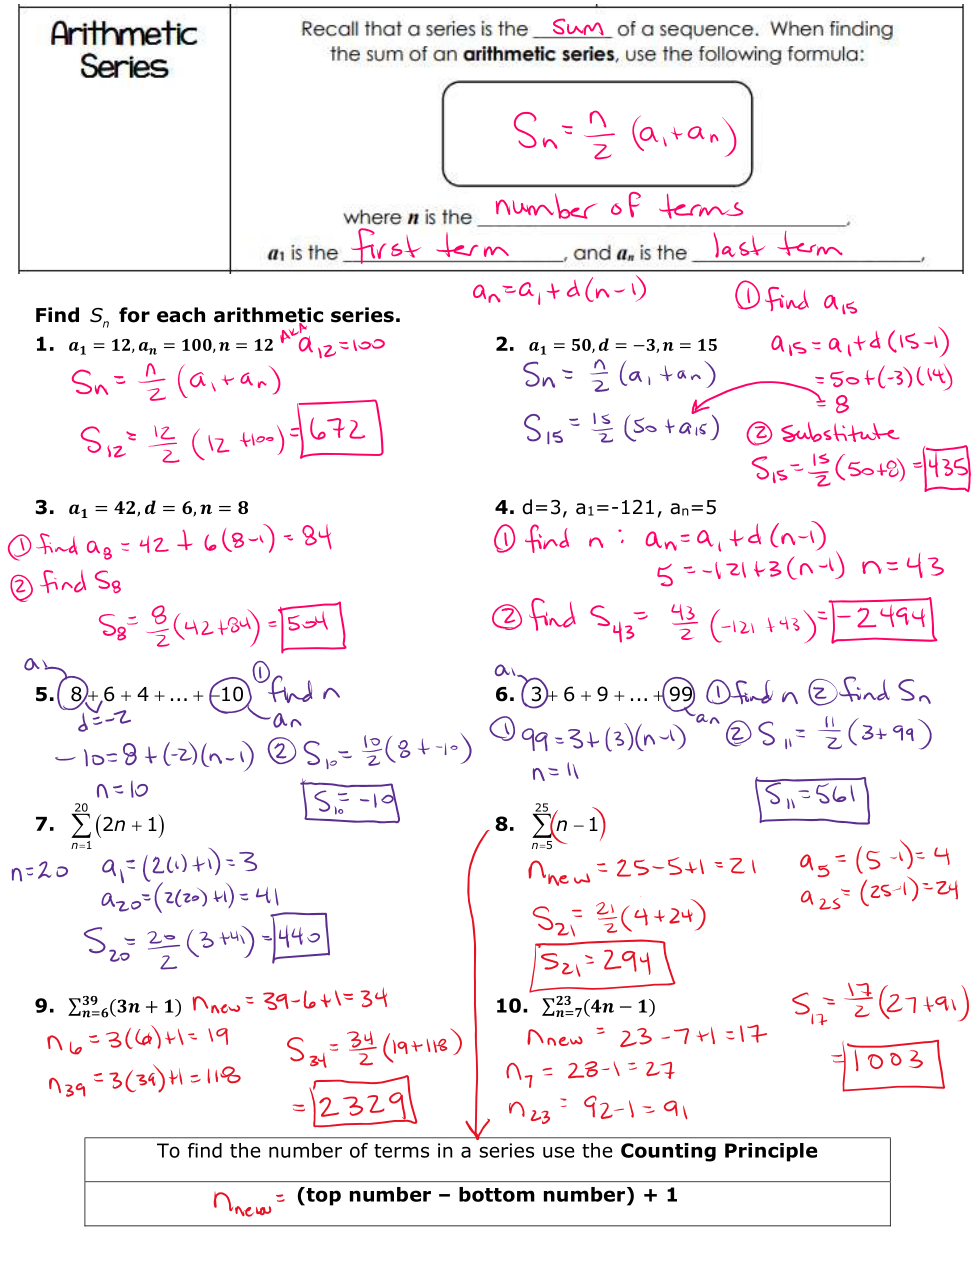 Arithmetic Series
Recall that a series is the sum of a sequence. When finding
the sum of an arithmetic series, use the following formula:
Sn = n/2 (a₁+an)
where n is the number of terms,
a₁ is the first term, and aₙ is the last term,
an=a₁+d(n-1)
Find Sₙ for each arithmetic series.
1. a₁ = 12, aₙ = 100, n = 12 AKA a₁₂=100
Sn = n/2 (a₁+an)
S₁₂ = 12/2 (12+100) = 672
2. a₁ = 50, d = −3, n = 15
① find a₁₅
a₁₅=a₁+d(15-1)
=50+(-3)(14)
= 8
Sn = n/2 (a₁+an)
S₁₅ = 15/2 (50+a₁₅)
② Substitute
S₁₅=15/2(50+8)=435
3. a₁ = 42, d = 6, n = 8
① find a₈ = 42 + 6(8-1) = 84
② find S₈
S₈=8/2(42+84)=504
4. d=3, a₁=-121, aₙ=5
① find n : an=a₁+d(n-1)
5 = -121+3(n-1) n=43
② find S₄₃= 43/2 (-121+43)=-2494
5. 8 + 6 + 4 + ... + -10 ① find n
a₁
d=-2
an
-10=8+(-2)(n-1) ② S₁₀=10/2(8+-10)
n=10
S₁₀=-10
6. 3 + 6 + 9 + ... + 99 ① find n ② find Sn
a₁
an
① 99=3+(3)(n-1) ② S₁₁ = 11/2 (3+99)
n=11
S₁₁=561
7. 20 ∑ n=1 (2n + 1)
n=20 a₁=(2(1)+1)=3
a₂₀=(2(20)+1)=41
S₂₀=20/2(3+41)=440
8. 25 ∑ n=5 (n − 1)
nnew = 25-5+1=21
a₅=(5-1)=4
a₂₅=(25-1)=24
S₂₁=21/2(4+24)
S₂₁=294
9. ∑³⁹ₙ₌₆(3n + 1) nnew = 39-6+1=34
n₆=3(6)+1=19
n₃₉=3(39)+1=118
S₃₄=34/2(19+118)
=2329
10. ∑²³ₙ₌₇(4n − 1)
nnew = 23-7+1=17
n₇ = 28-1=27
n₂₃ = 92-1=91
S₁₇=17/2(27+91)
=1003
To find the number of terms in a series use the Counting Principle
nnew = (top number – bottom number) + 1